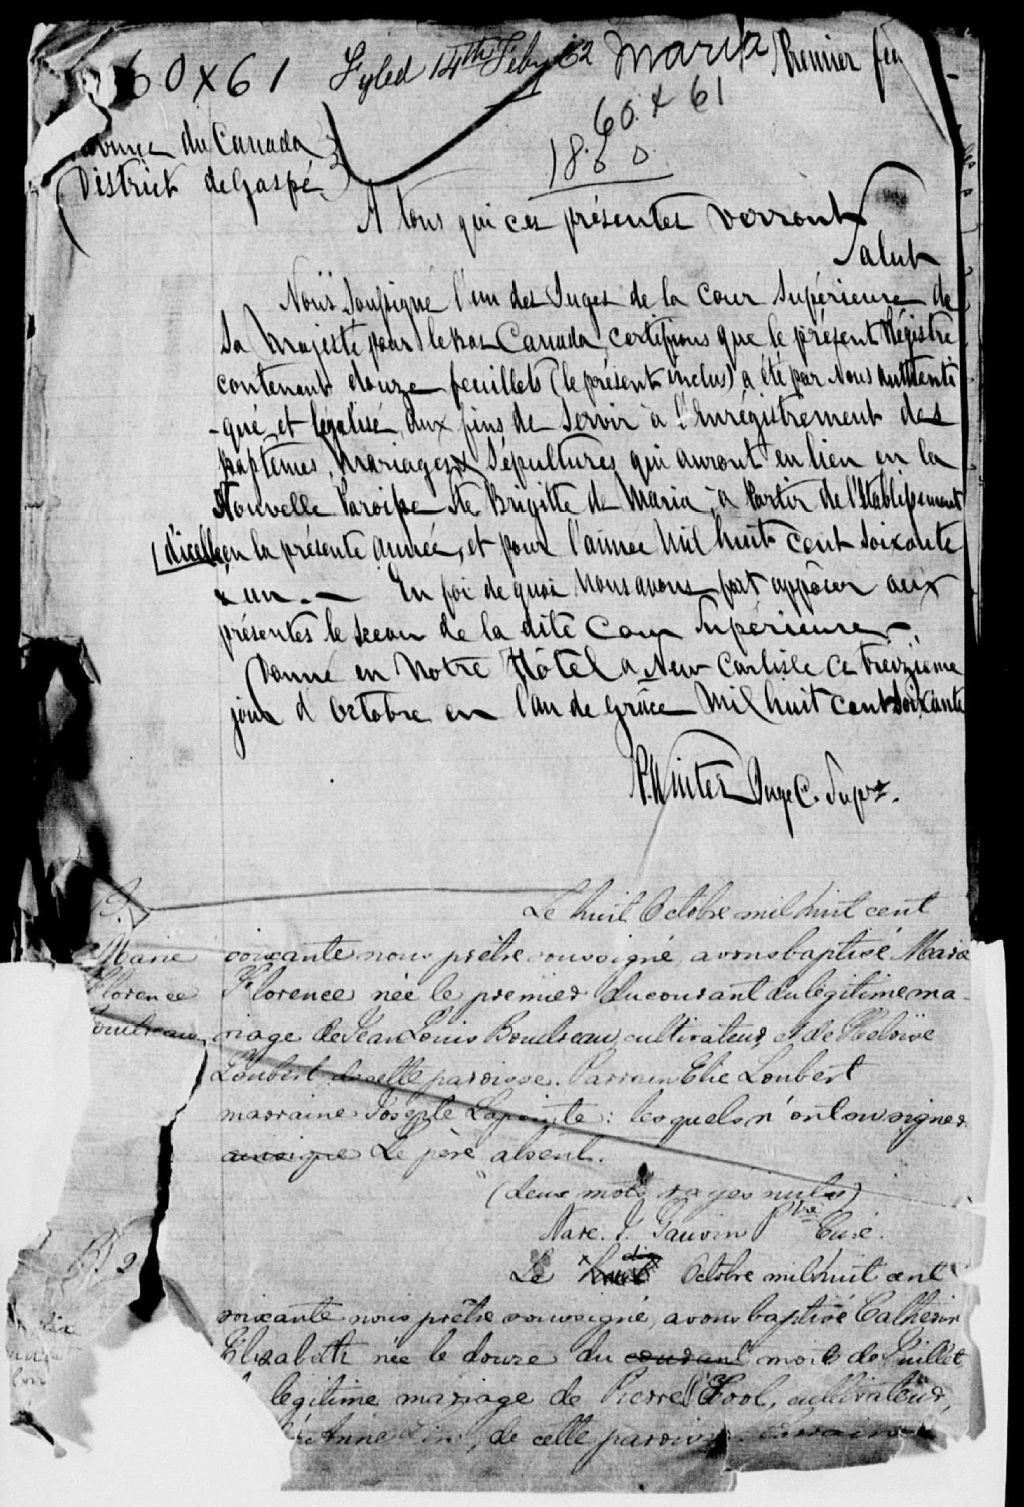 60 x 61 Fyled 14th Feby 62 Maria Premier feu
60 x 61
1860
ovince du Canada
District de Gaspé
A tous qui ces présentes verront
Salut
Nous Soussigné l'un des Juges de la Cour Supérieure de
Sa Majesté pour le Bas Canada certifions que le présent Régistre
contenant douze feuillets (le présent inclus) a été par Nous authenti
-qué et légalisé aux fins de Servir à l'Enrégistrement des
Baptêmes, Mariages & Sépultures qui auront eu lieu en la
Nouvelle Paroisse Ste Brigitte de Maria, à Partir de l'établissement
d'icelle en la présente année, et pour l'année Mil huit cent soixante
& un. — En foi de quoi Nous avons fait apposer aux
présentes le Sceau de la dite Cour Supérieure.
Donné en Notre Hôtel à New Carlisle ce treizième
jour d'Octobre en l'an de Grâce Mil huit cent soixante
Winter Juge C. Supre.
Le huit Octobre mil huit cent
Marie soixante nous prêtre soussigné, avons baptisé Marie
Florence Florence née le premier du courant du légitime ma-
riage de Jean Louis Boudreau, cultivateur, et de Heloïse
Loubert de cette paroisse. Parrain Elie Loubert
marraine Josephte Lapointe: lesquels n'ont su signer
Le père absent.
(deux mots rayés nuls)
Narc. J. Gauvin Ptre Curé.
B. 2
Le dix Octobre mil huit cent
soixante nous prêtre soussigné, avons baptisé Catherin
Elizabeth née le douze du courant mois de Juillet
légitime mariage de Pierre, cultivateur,
Anne, de cette paroisse